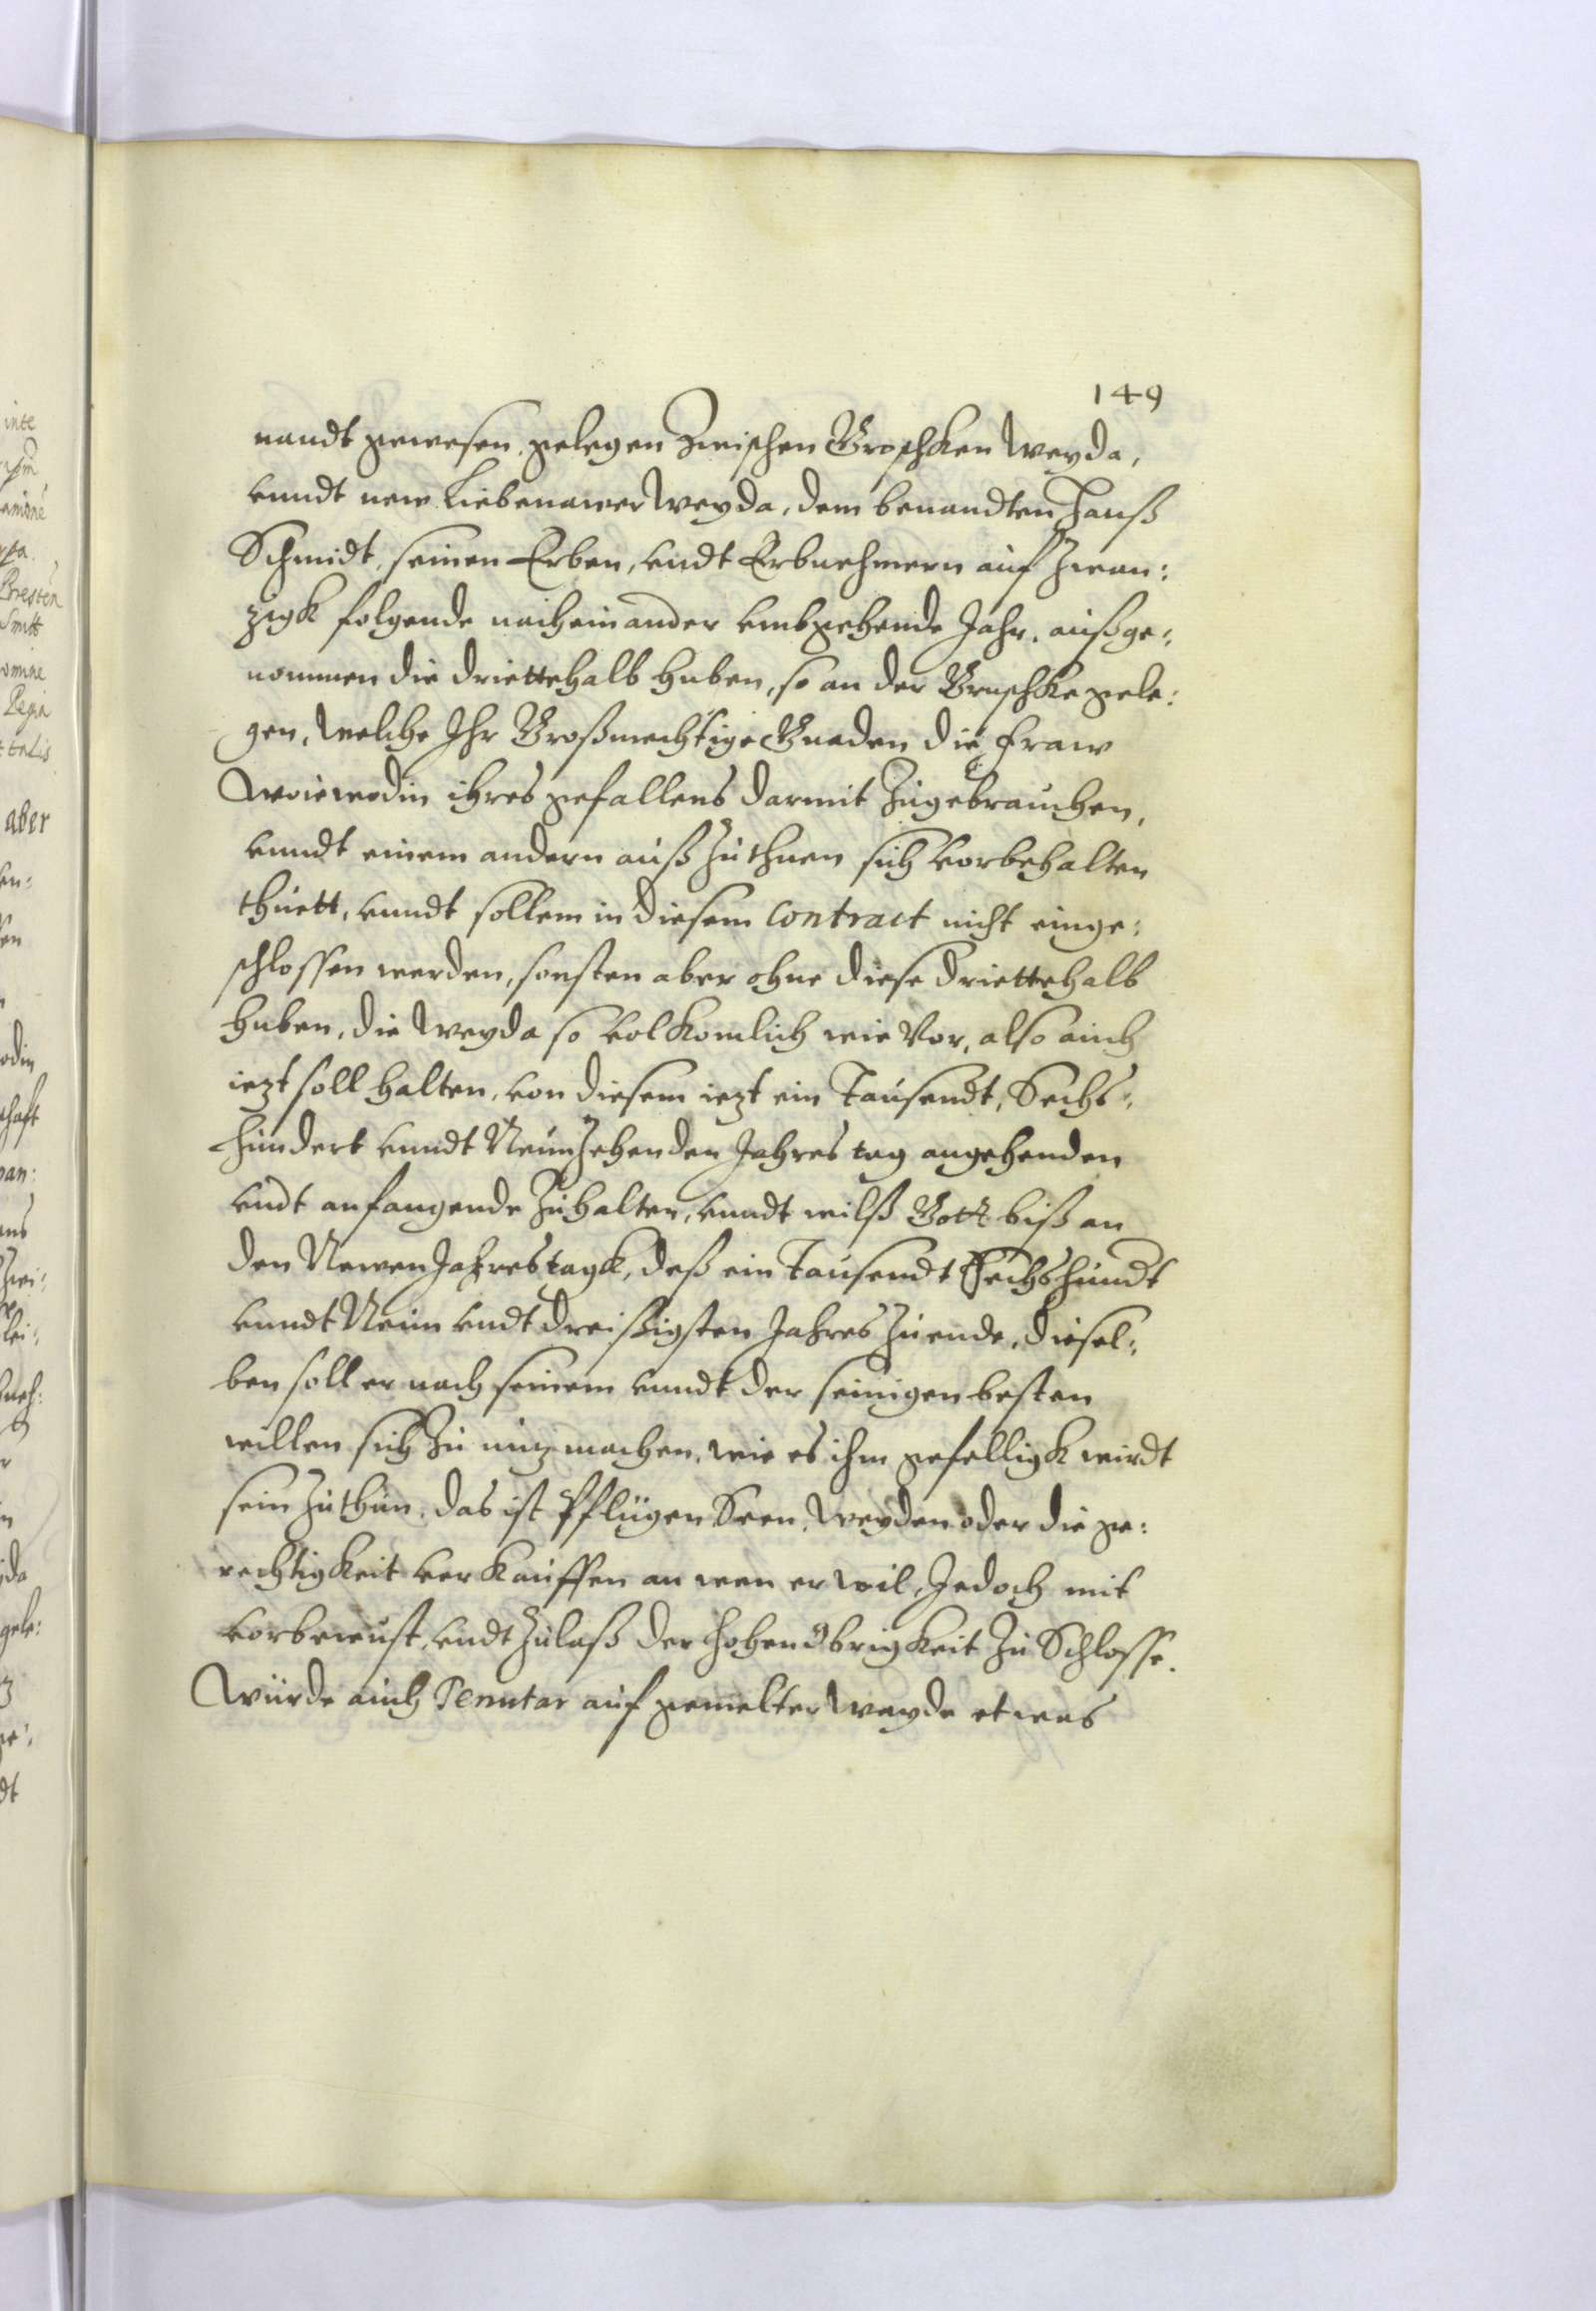 149
nandt gewesen, gelegen Zwischen Groschken Weyda,
vnndt new Liebenawer Weyda, dem benandten Hanß
Schmidt, seinen Erben, vndt Erbnehmern auf zwan:
zigk folgende nacheinander vmbgehende Jahr, außge:
nommen die driettehalb huben, so an der Gruschke gele:
gen, Welche Ihr Großmechtige Gnaden die Fraw
Woiewodin ihres gefallens darmit Zugebrauchen,
vnndt einem andern auß Zuthuen sich vorbehalten
thuett, vnndt sollem in diesem Contract nicht einge:
schlossen werden, sonsten aber ohne diese driettehalb
huben, die Weyda so volkomlich wie Vor, also auch
iezt soll halten, von diesem iezt ein Tausendt, Sechs:
hundert vnndt Neunzehenden Jahres tag angehenden
vndt anfangende Zuhalten, vnndt wilß Gott biß an
den Newen Jahrestagk, deß ein Tausendt Sechshundt
vnndt Neun vndt dreißigsten Jahres Zu ende, diesel:
ben soll er nach seinem vnndt der seinigen besten
willen sich Zu nuz machen, wie es ihm gefelligk wirdt
sein Zuthun, das ist Pflügen Seen, Weyden oder die ge:
rechtigkeit verkauffen an wen er wil, Jedoch mit
vorbewust, vndt Zulaß der hohen Obrigkeit Zu Schlosse.
Würde auch Tenutar auf gemelter Weyde etwas